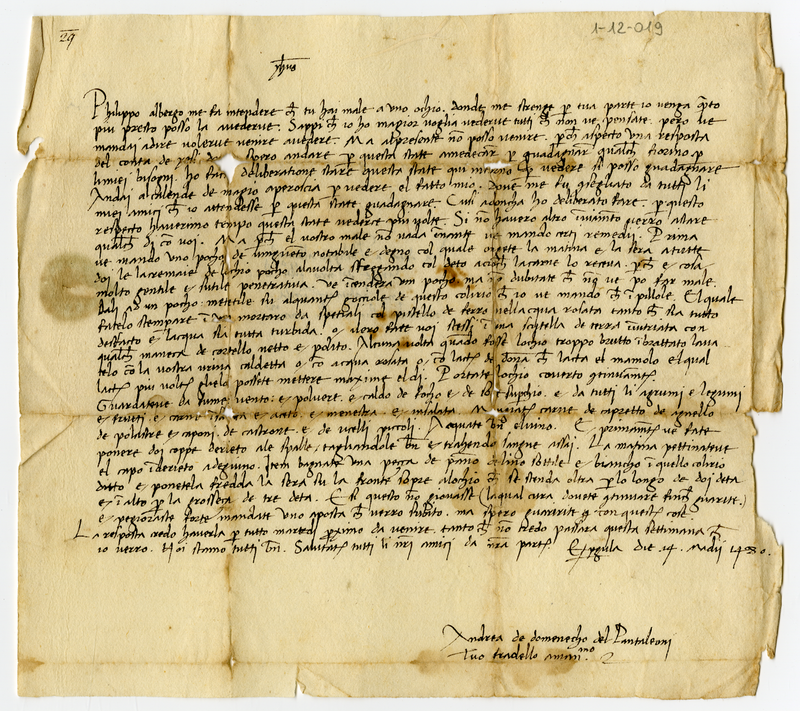 29
1-12-019
yhus
Philippo albergo me fa intendere ch tu hai male a uno ochio. Donde me strenge p tua parte io venga qto
piu presto posso la avederve. Sappi ch io ho magior voglia vederve tutti ch non ve pensate. pero ve
mandai adire volerve venire avedere. Ma alpresente no posso venire. pch aspecto una resposta
del conta de andare p questa state amedecinar p guadagnar qualch fiorino p
limiei bisogni. ho fatto deliberatione stare questa state qui p vedere si posso guadagnare
Andai alcalende de magio aperoscia p vedere el fatto mio. dove me fu cosigliato da tutti li
miei amici ch io attendesse p questa state guadagnare. Cusi adoncha ho deliberato fare. p questo
respecto haverimo tempo questa state vederce piu volte. Si no havero altro inanto verro astare
qualch di co voi. Ma pch el vostro male no vada inante ve mando certi remedii. Prima
ve mando uno pocho de ungueto notabile e degno col quale ongete la matina e la sera atutte
doi le lacremaie de lochio pocho alavolta fregando col deto acioch lacarne lo receva. pch e cosa
molto gentile e sutile penetrativa. Ve incendera un pocho. ma no dubitate ch no ve po far male.
Dali ad un pocho mettete su alquante gocciole de questo colirio ch io ve mando ch i pillole. El quale
fatelo stempare i un mortaro da spetiali co pistello de ferro nellacqua rosata tanto ch sia tutto
desfacto e lacqua sia tutta turbida. o/ aloro fate voi stessi i una scutella de terra invitriata con
qualch maneca de cortello netto e polito. Alcuna volta quado fosse lochio troppo brutto ibrattato lava
telo co la vostra urina caldetta o/ co acqua rosata o/ co lacte de dona ch lacta el mamolo el qual
lacte piu volte elveld possete mettere maxime eldi. Portate lochio coverto continuante.
Guardateve da fume, vento: e polvere. e caldo de focho e de sole supchio. e da tutti li agrumi e legumi
e frutti e carne salata e aceto: e menestra e insalata. Mangiate carne de capretto de agnello
de polastre e caponi. de castrone. e de ucelli piccoli. Acquate bn elvino. E primante ve fate
ponere doi coppe derieto ale spalle, tagliandole bn e trahendo sangue assai. La matina pettinateve
el capo iderieto adegiuno. Item bagnate una pecça de pano de lino sottile e biancho i quello colirio
ditto e ponetela fredda la sera su la fronte sopre alochio ch se stenda oltra p lo longo de doi deta
e i alto p la grosseça de tre deta. E si questo no giovasse (laqual cura dovete continuare finch guarite.)
e pegiorasse forte mandate uno aposta ch verro subito. ma spero guaririte con queste cose.
La resposta credo haverla p tutto martedi proximo da venire. tanto ch no credo passara questa settimana ch
io verro. Noi stamo tutti bn. Salutate tutti li nri amici da nra parte. Ex pgula die 14. Madii 1480.
Andrea de domenecho del Pantaleoni
tuo fradello aman.mo